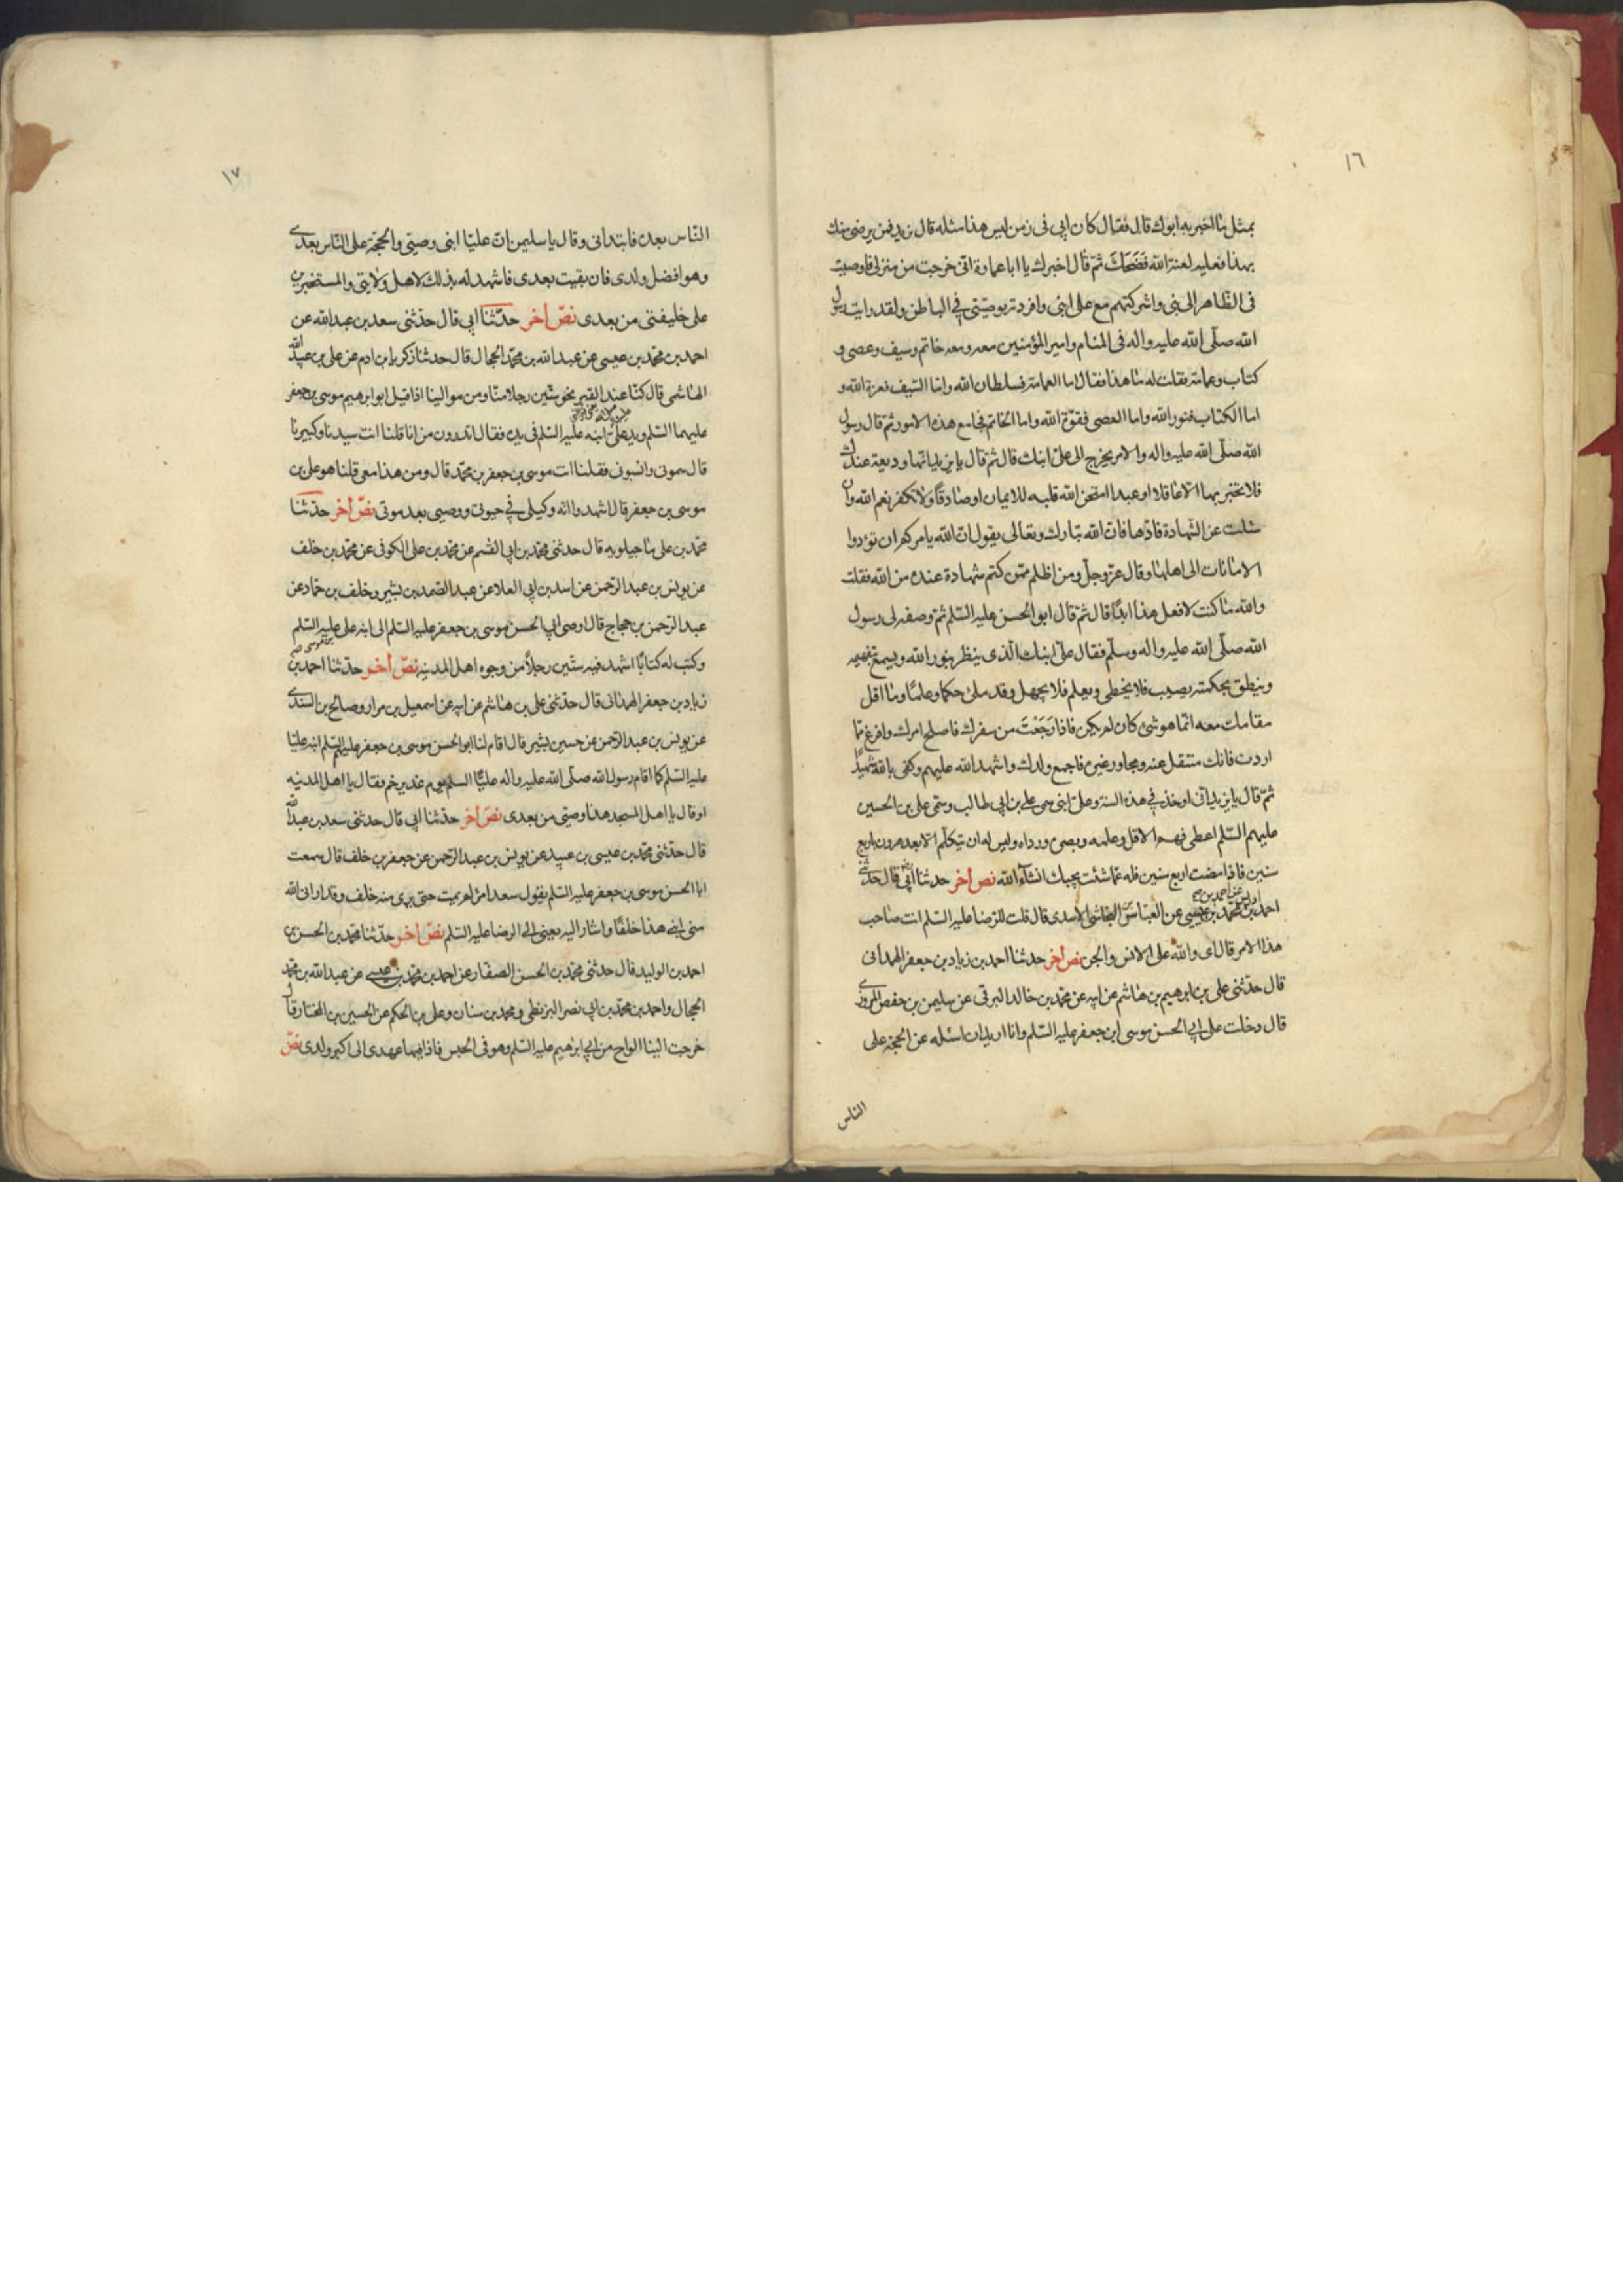 ١٦
بمثل ما اخبر به ابوك قال فقال كان ابي في زمن ليس هذا مثله قال يزيد فمن يرضى منك
بهذا فعليه لعنة الله فَضَحِكَ ثمّ قال اخبرك يا ابا عمارة انّى خرجت من منزلى فاوصيت
فى الظاهر الى بنى واشركتهم مع على ابنى وافردته بوصيّتى في الباطن ولقد رايت رسول
الله صلّى الله عليه واله فى المنام وامير المؤمنين معه ومعه خاتم وسيف وعصى و
كتاب وعمامة فقلت له ما هذا فقال اما العمامة فسلطان الله واما السّيف فعزة الله و
اما الكتاب فنور الله واما العصى فقوّة الله واما الخاتم فجامع هذه الامور ثمّ قال رسول
الله صلّى الله عليه واله والامر يخرج الى علىّ ابنك قال ثمّ قال يا يزيد انّها وديعة عندك
فلا تخبر بها الّا عاقلا او عبدا امتحن الله قلبه للايمان او صادقًا ولا تكفر نعم الله وان
سئلت عن الشّهادة فادّها فانّ الله تبارك وتعالى يقول انّ الله يامركم ان تؤدوا
الامانات الى اهلها وقال عزّ وجلّ ومن اظلم ممّن كتم شهادة عنده من الله فقلت
والله ما كنت لافعل هذا ابدًا قال ثمّ قال ابو الحسن عليه السّلم ثمّ وصفه لى رسول
الله صلّى الله عليه واله وسلّم فقال علىّ ابنك الّذى ينظر بنور الله ويسمع بتفهيمه
وينطق بحكمته يصيب فلا يخطى ويعلم فلا يجهل وقد ملئ حكما وعلمًا وما اقل
مقامك معه انّما هو شئ كان لم يكن فاذا رَجَعْتَ من سفرك فاصلح امرك وافرغ ممّا
اردت فانك منتقل عنه ومجاور غيره فاجمع ولدك واشهد الله عليهم وكفى بالله شهيدًا
ثمّ قال يا يزيد انّى اوخذ في هذه السنة وعلىّ ابنى سمى على بن ابى طالب وسمّى على بن الحسين
عليهم السّلم اعطى فهم الاوّل وعلمه وبصره ورداه وليس له ان يتكلّم الّا بعد هرون باربع
سنين فاذا مضت اربع سنين فله عمّا شئت يجبك انشآء الله نص اخر حدثنا ابى قال حدثنى
احمد بن محمد بن عيسى عن العباس النجاشى الاسدى قال قلت للرّضا عليه السّلم انت صاحب
هذا الامر قال اى والله على الانس والجن نص اخر حدثنا احمد بن زياد بن جعفر الهمدانى
قال حدّثنى على بن ابرهيم بن هاشم عن ابيه عن محمّد بن خالد البرقى عن سليمن بن حفص المروزى
قال دخلت على ابي الحسن موسى ابن جعفر عليه السّلم وانا اريد ان اسئله عن الحجّة على
الناس
١٧
النّاس بعده فابتدانى وقال يا سليمن انّ عليّا ابنى ووصيتى والحجّة على النّاس بعدى
وهو افضل ولدى فان بقيت بعدى فاشهد له بذلك لاهل ولايتى والمستخبرين
على خليفتى من بعدى نصّ اخر حدّثنا ابى قال حدّثنى سعد بن عبد الله عن
احمد بن محمّد بن عيسى عن عبد الله بن محمّد الحجال قال حدثنا زكريا بن ادم عن على بن عبد الله
الهاشمى قال كنّا عند القبر نحو ستّين رجلا منّا ومن موالينا اذا اقبل ابو ابرهيم موسى بن جعفر
عليهما السّلم ويد علىّ ابنه عليه السّلم فى يده فقال اتدرون من انا قلنا انت سيدنا وكبيرنا
قال سمونى وانسبونى فقلنا انت موسى بن جعفر بن محمّد قال ومن هذا معى قلنا هو على بن
موسى بن جعفر قال اشهدوا انّه وكيلى في حيوتى ووصيى بعد موتى نصّ اخر حدّثنا
محمّد بن على ما جيلويه قال حدثنى محمّد بن ابى القسم عن محمّد بن على الكوفى عن محمّد بن خلف
عن يونس بن عبد الرّحمن عن اسد بن ابى العلا عن عبد الصّمد بن بشير وخلف بن حمّاد عن
عبد الرّحمن بن حجاج قال اوصى ابو الحسن موسى بن جعفر عليه السّلم الى ابنه على عليه السّلم
وكتب له كتابًا اشهد فيه ستّين رجلاً من وجوه اهل المدينه نصّ اخر حدّثنا احمد بن
زياد بن جعفر الهمدانى قال حدثنى على بن هاشم عن ابيه عن اسمعيل بن مرار وصالح بن السّندى
عن يونس بن عبد الرّحمن عن حسين بشير قال اقام لنا ابو الحسن موسى بن جعفر عليه السّلم ابنه عليّا
عليه السّلم كما اقام رسول الله صلّى الله عليه واله عليًّا السلم يوم غدير خم فقال يا اهل المدينه
او قال يا اهل المسجد هذا وصيّى من بعدى نصّ اخر حدّثنا ابى قال حدثنى سعد بن عبد الله
قال حدّثنى محمّد بن عيسى بن عبيد عن يونس بن عبد الرّحمن عن جعفر بن خلف قال سمعت
ابا الحسن موسى بن جعفر عليه السّلم يقول سعد امرؤ لم يمت حتى يرى منه خلف وقد ارانى الله
منى ابنى هذا خلفًا واشار اليه يعنى الى الرضا عليه السّلم نصّ اخر حدّثنا محمّد بن الحسن بن
احمد بن الوليد قال حدثنى محمّد بن الحسن الصفّار عن احمد بن محمّد بن عيسى عن عبد الله بن محمّد
الحجال واحمد بن محمّد بن ابى نصر البزنطى ومحمد بن سنان وعلى بن الحكم عن الحسين بن المختار قال
خرجت الينا الواح من ابى ابرهيم عليه السّلم وهو فى الحبس فاذا فيها عهدى الى اكبر ولدى نصّ